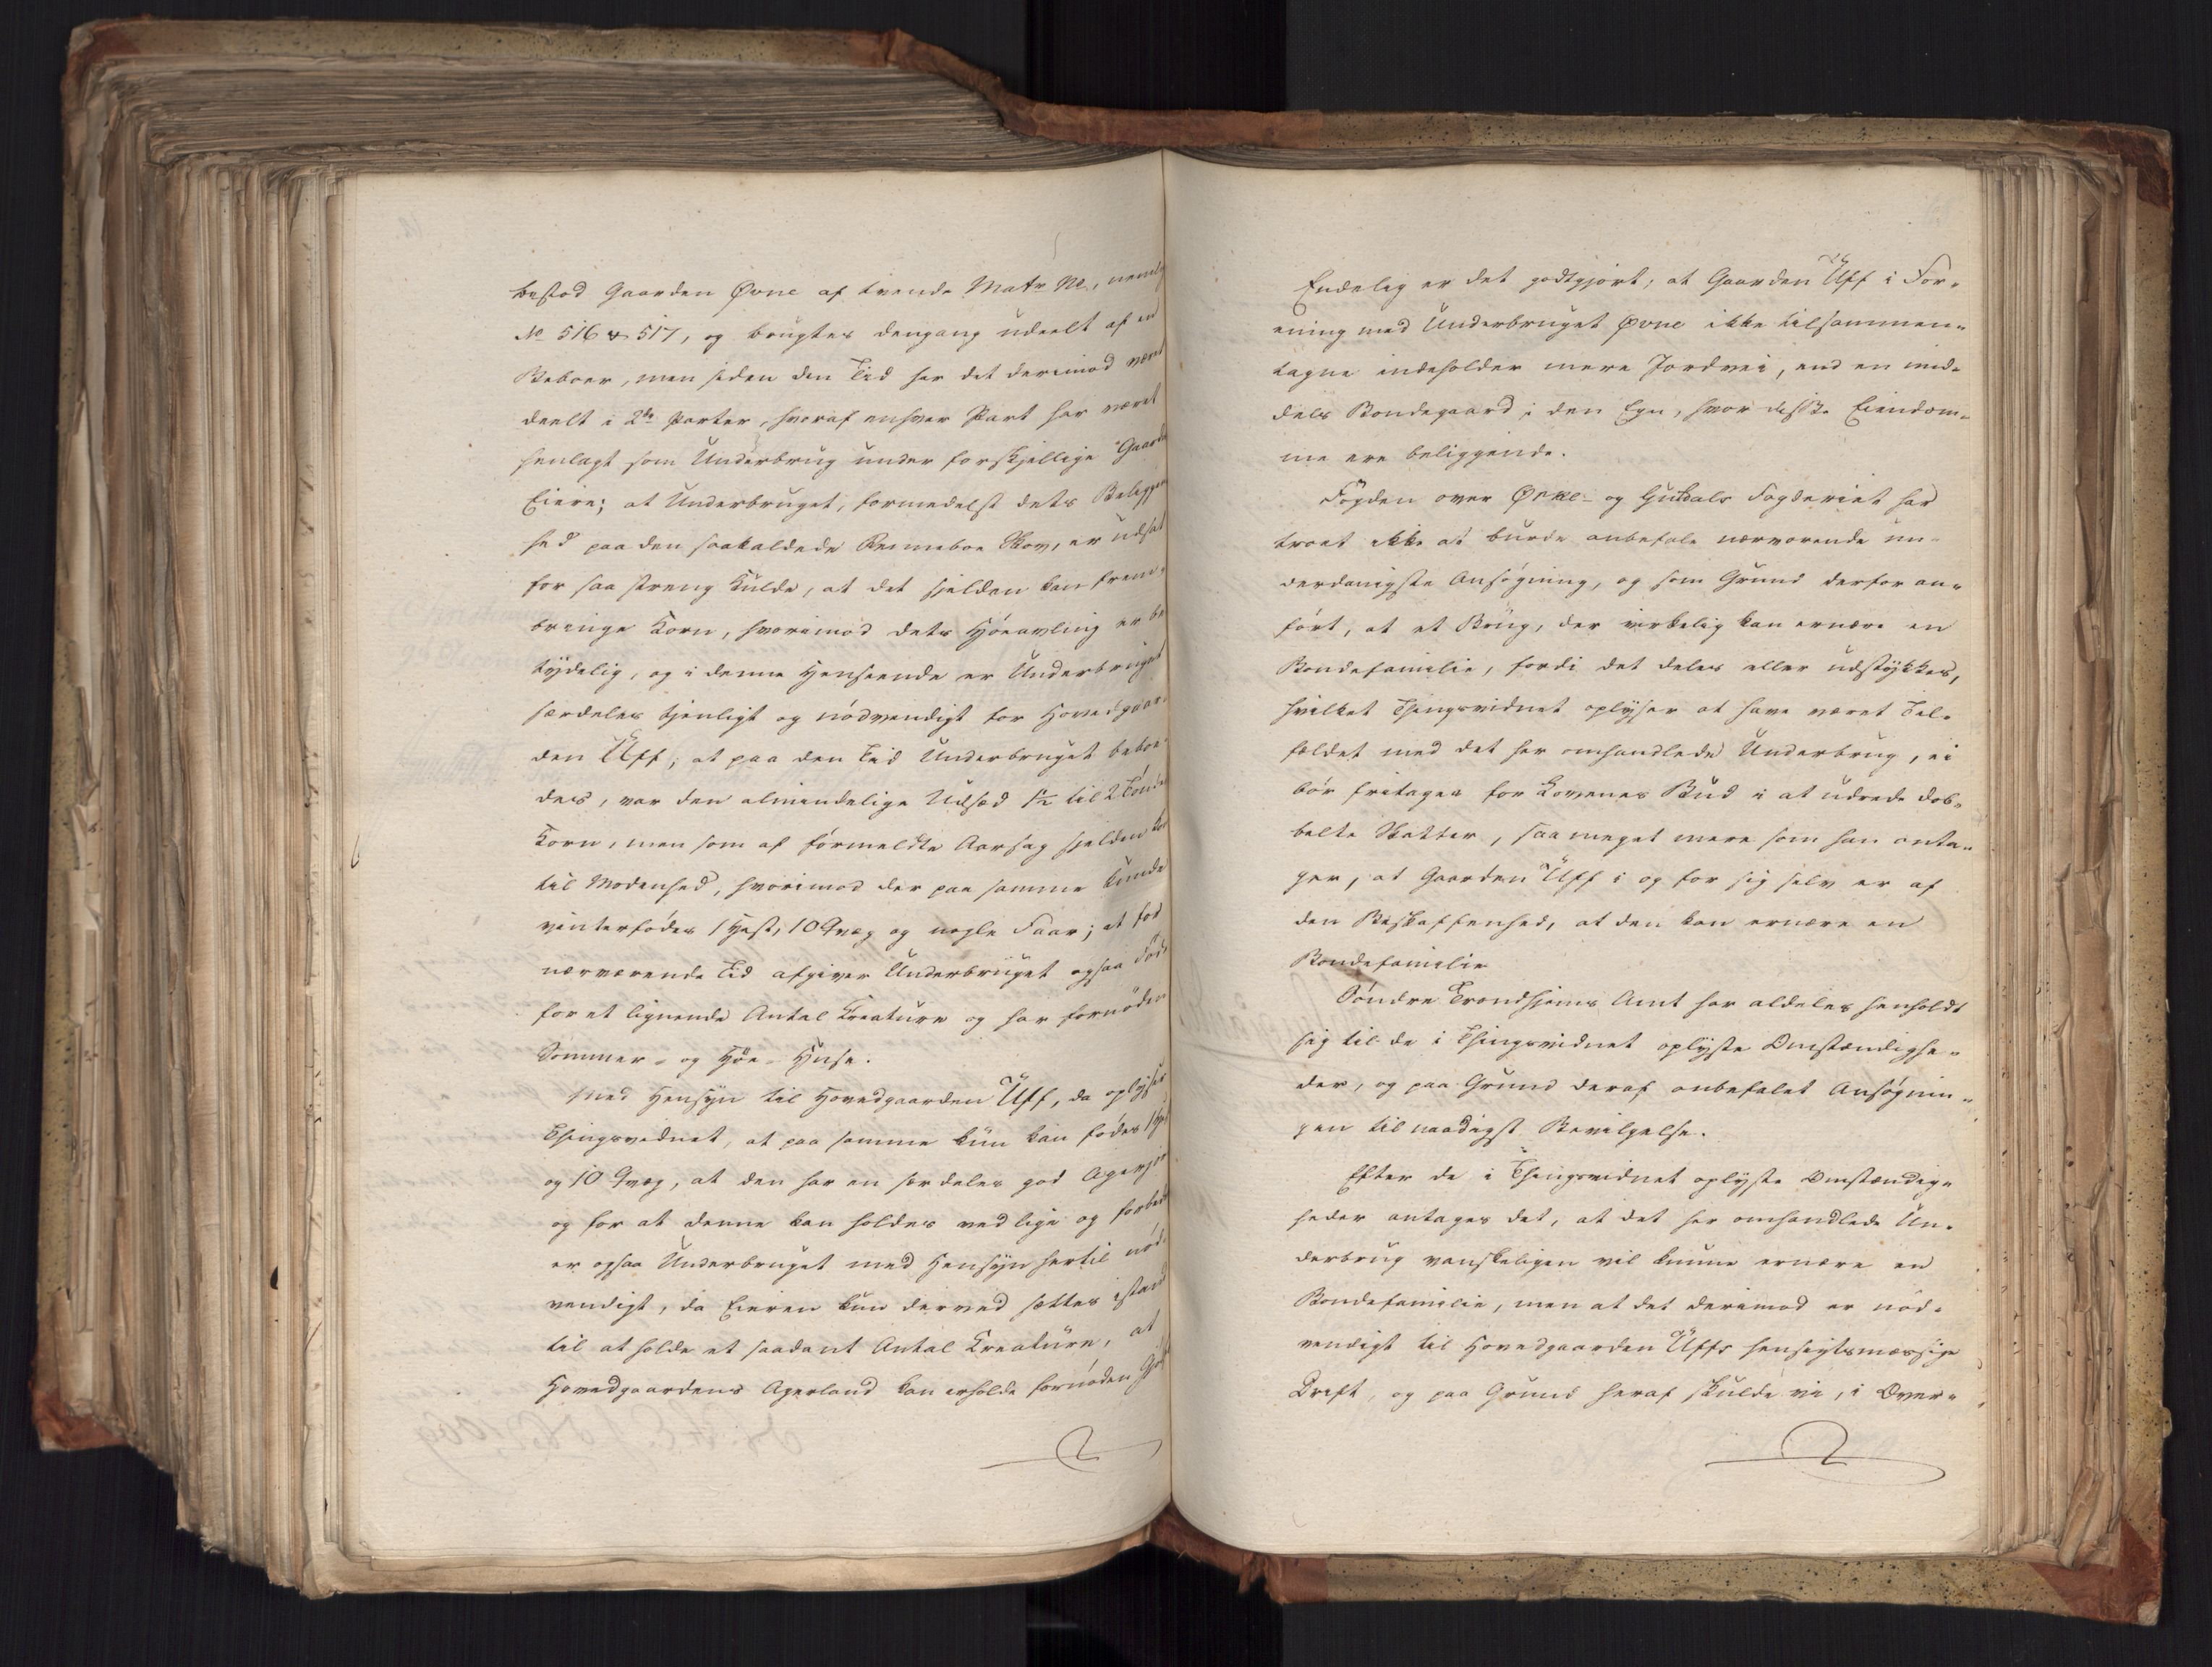 bestod Gaarden Øvne af tvende Matr No, nemlig
No 516 & 517, og brugtes dengang udeelt af en
Beboer, men siden den Tid har det derimod været
deelt i 2de Parter, hvoraf enhver Part har været
henlagt som Underbrug under forskjellige Gaard
Eiere; at Underbruget, formedelst dets Beliggen
hed paa den saakaldede Renneboe Skov, er udsat
for saa streng Kulde, at det sjelden kan frem-
bringe Korn, hvorimod dets Høeavling er be
tydelig, og i denne Henseende er Underbruget
særdeles tjenligt og nødvendigt for Hovedgaar-
den Uff; at paa den Tid Underbruget beboe-
des, var den almindelige Udsæd 1½ til 2 Tønder
Korn, men som af formeldte Aarsag sjelden kom
til Modenhed, hvorimod der paa samme kunde
vinterfødes 1 Hest, 10 Qvæg og nogle Faar; at for
nærværende Tid afgiver Underbruget ogsaa Føde
for et lignende Antal Kreature og har fornøden
Sommer- og Høe-Huse.
Med Hensyn til Hovedgaarden Uff, da oplyser
Thingsvidnet, at paa samme kun kan fødes 1 Hest
og 10 Qvæg, at den har en særdeles god Agerjord
og for at denne kan holdes ved lige og forbedres
er ogsaa Underbruget med Hensyn hertil nød-
vendigt, da Eieren kun derved sættes istand
til at holde et saadant Antal Kreature, at
Hovedgaardens Agerland kan erholde fornøden Gjød
Endelig er det godtgjort, at Gaarden Uff i For-
ening med Underbruget Øvne ikke tilsammen-
tagne indeholder mere Jordvei, end en mid-
dels Bondegaard i den Egn, hvor disse Eiendom-
me ere beliggende.
Fogden over Ørke- og Guldals Fogderiet har
troet ikke at burde anbefale nærværende un-
derdanigste Ansøgning, og som Grund derfor an-
ført, at et Brug, der virkelig kan ernære en
Bondefamilie, fordi det deles eller udstykkes,
hvilket Thingsvidnet oplyser at have været Til-
fældet med det her omhandlede Underbrug, ei
bør fritages for Lovenes Bud i at udrede dob-
belte Skatter, saa meget mere som han anta-
ger, at Gaarden Uff i og for sig selv er af
den Beskaffenhed, at den kan ernære en
Bondefamilie
Søndre Trondhjems Amt har aldeles henholdt
sig til de i Thingsvidnet oplyste Omstændighe-
der, og paa Grund deraf anbefalet Ansøgnin-
gen til naadigst Bevilgelse.
Efter de i Thingsvidnet oplyste Omstændig-
heder antages det, at det her omhandlede Un-
derbrug vanskeligen vil kunne ernære en
Bondefamilie, men at det derimod er nød-
vendigt til Hovedgaarden Uffs hensigtsmæssige
Drift, og paa Grund heraf skulde vi, i Over-